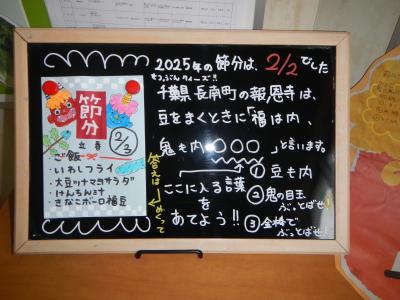 2025年の節分は、2/2でした
せつぶんクイズ!!
千葉県長南町の報恩寺は、
豆をまくときに「福は内、
鬼も内 ○○○ 」と言います。
ここに入る言葉
を
あてよう!!
① 豆も内
② 鬼の目玉
ぶっとばせ!
③ 全棒で
ぶっとばせ!
答えは
めくって
節分
2/3
立春
ご飯
・いわしフライ
・大豆ツナマヨサラダ
・けんちん汁
・きなこボーロ福豆